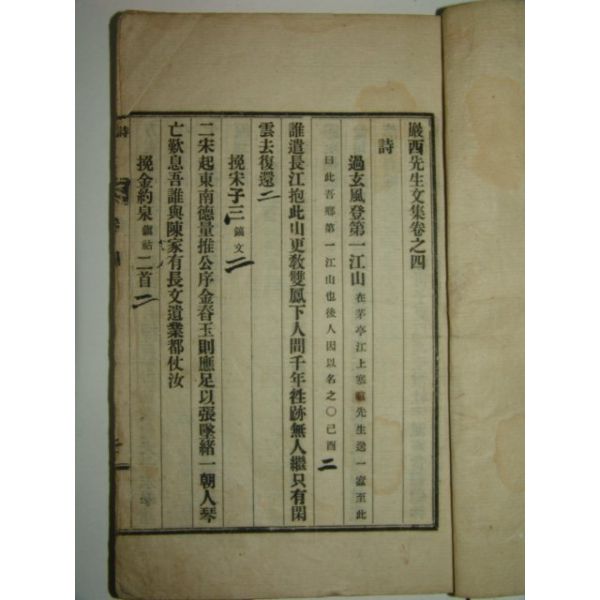 巖西先生文集卷之四
詩
過玄風登第一江山 在茅亭江上寒暄先生送一蠹至此
曰此吾鄉第一江山也後人因以名之〇己酉 二
誰遣長江抱此山更敎雙鳳下人間千年往跡無人繼只有閑
雲去復還 二
挽宋子三 鎬文 二
二宋起東南德量推公序金舂玉則應足以張墜緖一朝人琴
亡歎息吾誰與陳家有長文遺業都仗汝
挽金約泉 鎭祜 二首 二
詩